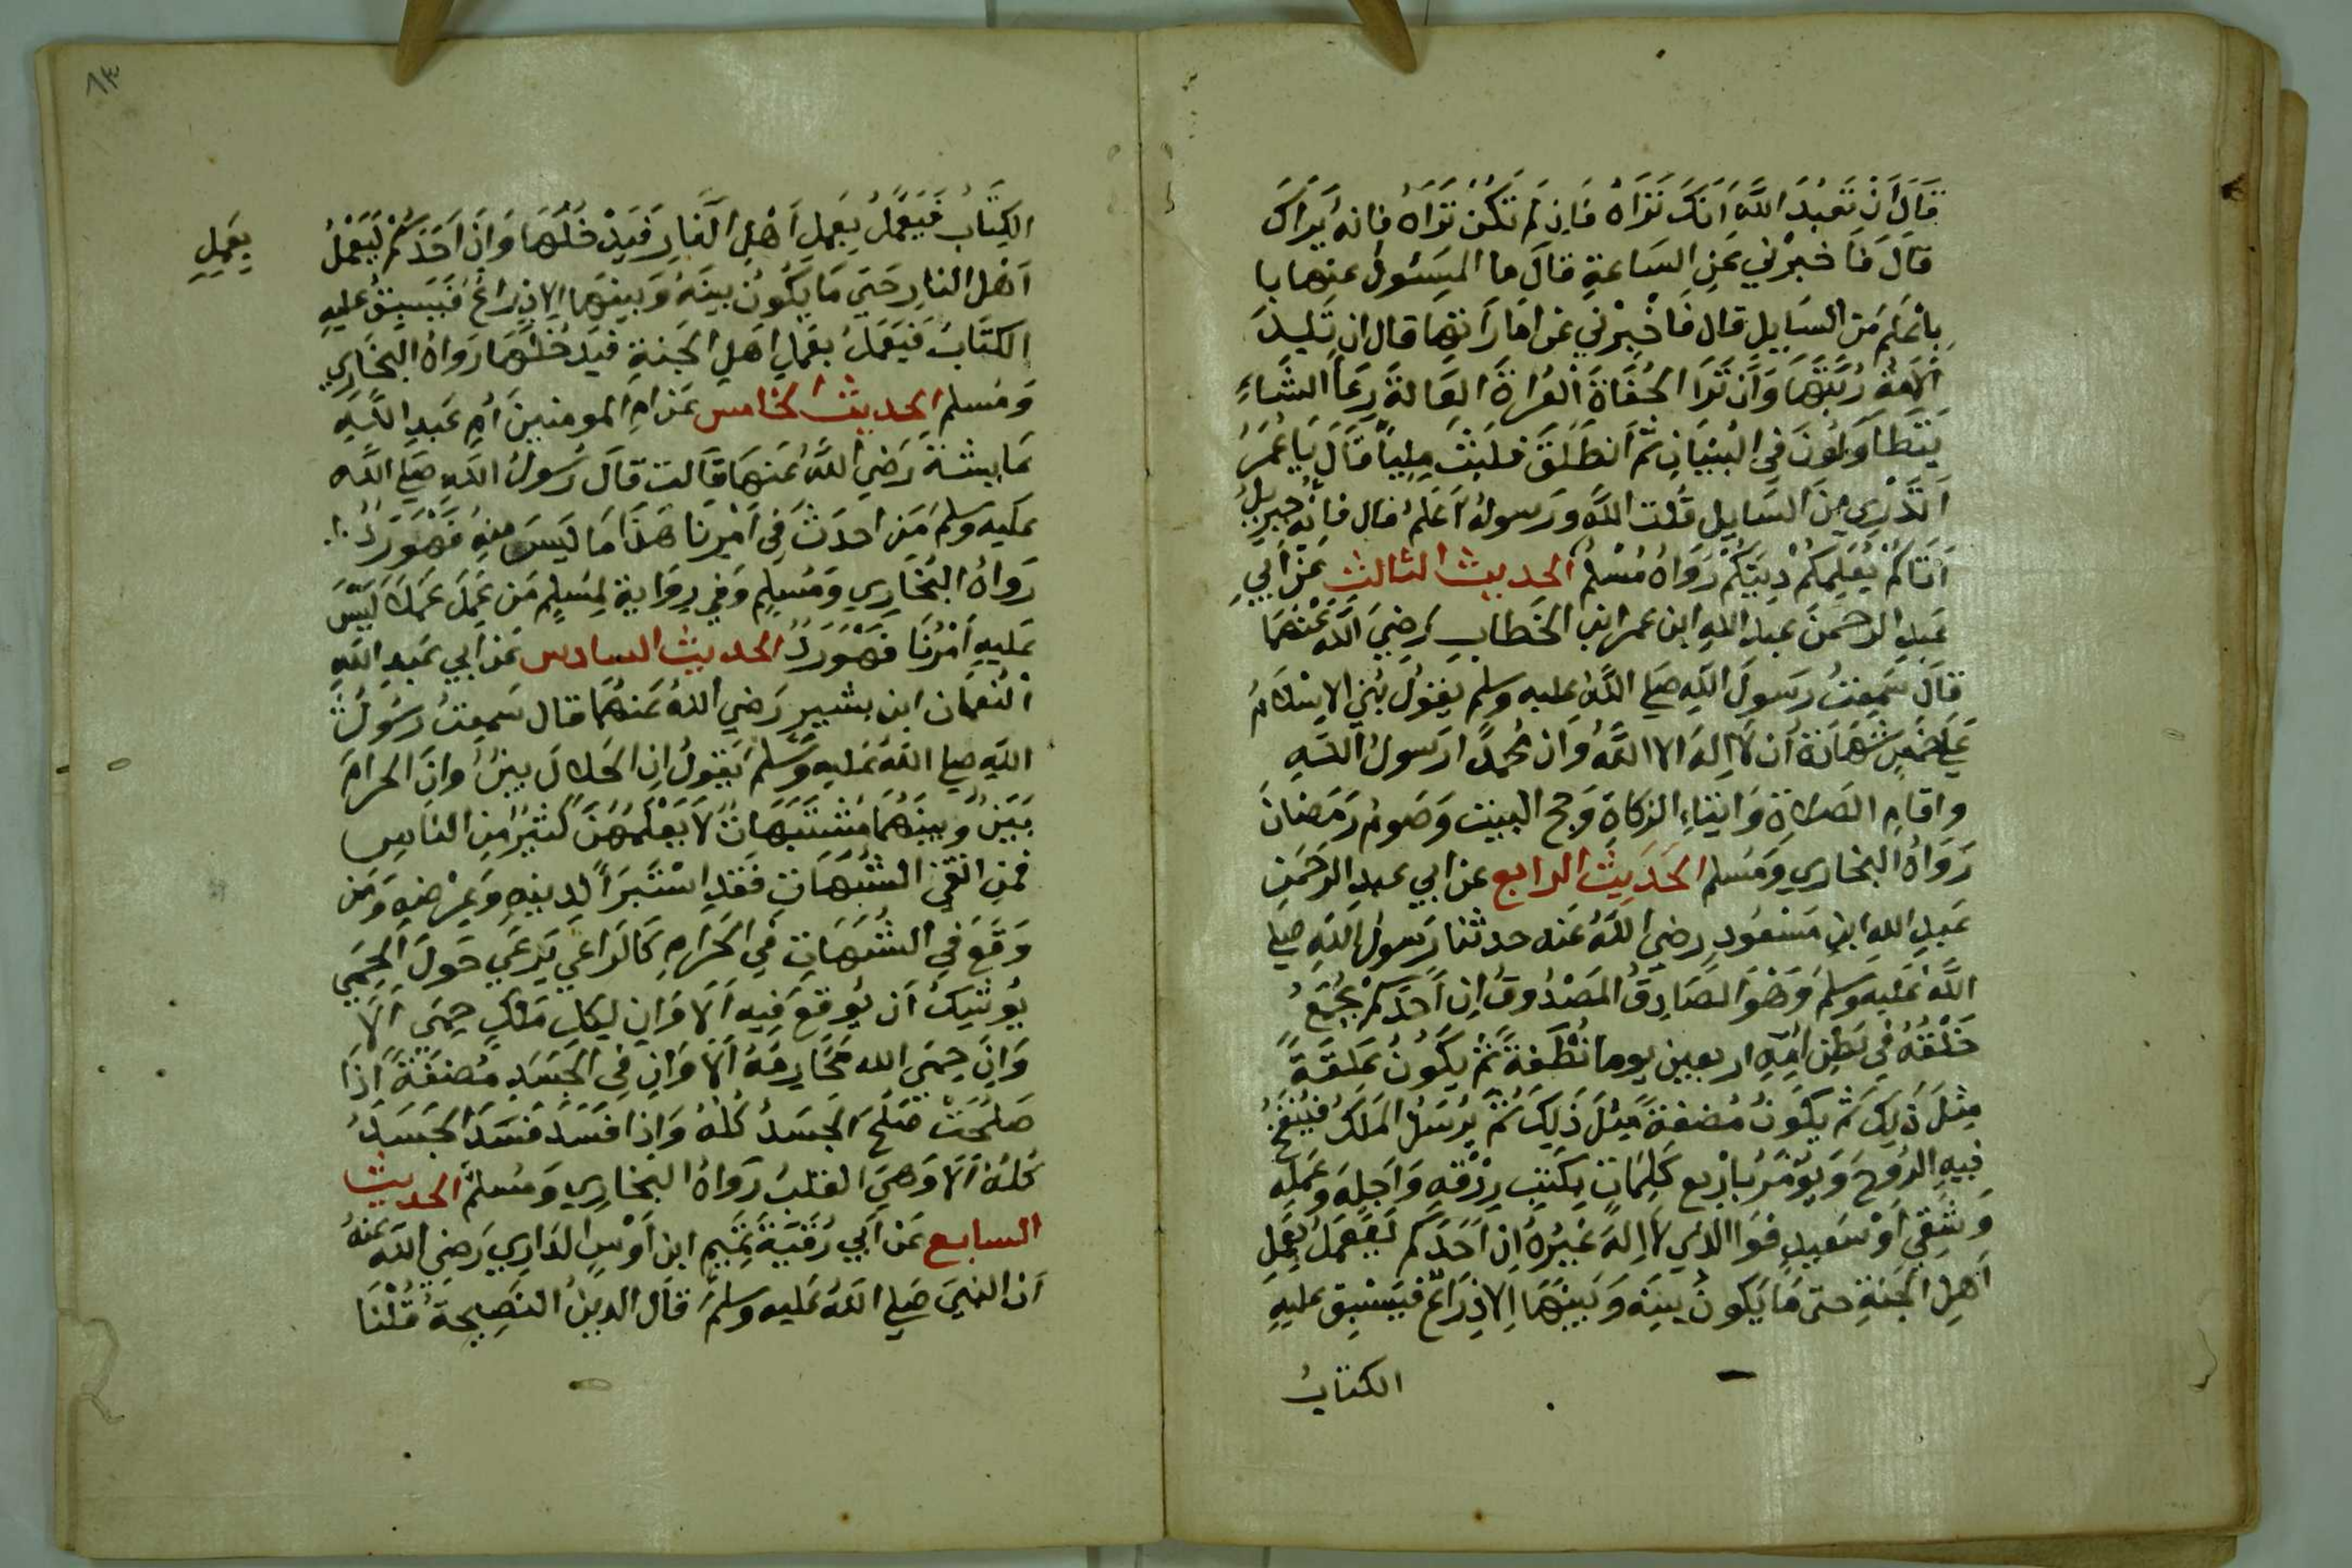 قَالَ أَنْ تَعْبُدَ اللَّهَ اَنَكَ تَرَاهُ فَاِن لَم تَكُنْ تَرَاهُ فانه يَرَاكَ
قَالَ فَاَخبرْني عَنِ السَاعةِ قالَ ما المسَئولُ عنها با
بِاعْلَم مَن السَايِل قال فَاَخْبِرْني عَن اَمَارَاتها قال ان تَلِدَ
الاَمَةُ رَبَّتَهَا وَاَن تَرَا الحُفَاةَ العُرَاةَ العَالةَ رِعَآ الشَاءِ
يَتَطَاوَلُونَ في البُنْيَانِ ثمَ اَنطَلَقَ فلَبِثَ مِلِيّاً قَالَ يَا عُمَرُ
اَتَدْرِي مِنَ السَايِلِ قُلت اللَّه وَرَسولهُ اَعَلمُ قال فاِنّه جبريلُ
اَتَاكُمْ يُعَلِمكُمْ دِيَنكُمْ رَوَاهُ مُسْلم الحديث الثالث عَن اَبي
عَبدِ الرحمنَ عبد اللهِ ابن عمر ابن الخَطابِ رَضِيَ اللَّه عَنْهُمَا
قالَ سَمِعتُ رسَولَ اللَّهِ صَلى اللَّه عليه وسلم يقولُ بُنِيَ الاِسْلامُ
عَلَى خَمسٍ شَهَادَة اَن لآ اِلهَ الا اللَّهُ وَان مُحمدًا رسَولُ اللَّهِ
واقامِ الصَلاةِ وَايتاءِ الزكاةِ وَحج البيت وَصَوم رَمَضانَ
رَوَاهُ البخاري وَمُسلم الحَدِيث الرابع عن ابي عبدِ الرَحَمنِ
عَبدِ اللهِ ابن مَسْعُودِ رضي اللَّهُ عَنه حدثنا رَسولُ اللَّهِ صلى
اللَّهُ عَليهِ وسلمَ وَهْوَ الصَادِقُ المَصْدُوقُ اِن اَحَدَكُمْ يُجْمَعُ
خَلْقُهُ فيَ بَطْنِ اُمّهِ اربعين يوما نُطْفَةً ثمَّ يَكُونُ عَلَقَةً
مِثلَ ذَلِكَ ثم يَكُونُ مُضغَةً مِثلَ ذَلِكَ ثمَّ يُرسَلُ المَلَكُ فيُنفَخُ
فيهِ الرُوحَ وَيُوْمَرُ باَرْبع كَلِمَاتٍ بِكتبِ رِزْقهِ وَاَجَلِهِ وَعَملِهِ
وَشَقِيٍ اَوْ سَعِيدٍ فوَ الذي لآ اِلهَ غَيْرُهُ اِنِ اَحَدَكم لَيَعْمَلُ بِعَملِ
اَهلِ الجَنةِ حتى مَا يَكونُ بينَه وَبينهَا اِلا ذِرَاعٌ فيَسْبِقُ عليهِ
الكتابُ
٨٣
الكِتَابُ فَيَعْمَلُ بِعَملِ اَهْلِ النَّارِ فَيَدْخُلُهَا وَاِنَ اَحَدَكُمْ ليَعْمَلُ
بِعَمِلِ
اَهْلِ النارِ حَتي مَا يَكُونُ بينَهُ وَبينهَا اِلا ذِرَاعٌ فَيَسبِقُ عليهِ
الكتَابُ فَيَعْمَلُ بعَملِ اَهلِ الجَنةِ فيَدخُلهَا رَوَاهُ البخَاري
وَمُسلم الحديث الخامس عَن امِ المومنين أُمِ عَبدِ اللَّهِ
عَايشة رَضيَ اللَّهُ عَنهَا قالت قالَ رَسولُ اللَّهِ صَلى اللَّه
عليهِ وَسلم مَن احدَثَ في اَمْرِنَا هَذَا مَا لَيسَ منهِ فَهْوَ رَدٌ
رَوَاهُ البُخَارِي وَمُسلِمِ وَفي رِوَايةٍ لِمسَلِم مَن عَمِلَ عَمَلاً لَيْسَ
عَليهِ اَمْرُنَا فَهْوَ رَدٌ الحديث السادس عَن اَبي عَبدِ اللَّهِ
النُعْمَان ابن بشيرٍ رَضيَ اللهُ عَنهُمَا قال سَمِعتُ رسَولَ
اللَّهِ صلى اللَّهُ عَليهِ وَسَّلمَ يَقولُ ان الحَلالَ بينٌ وانَ الحرامَ
بَيَنٌ وَبينَهُمَا مُشْتَبِهَاتٌ لاَ يَعْلَمُهُنَّ كَثيرٌ مِنَ النَاسِ
فمنِ اتَّقي الشُبُهَاتِ فَقَدِ اسْتَبرَاَ لِدينِهِ وَعِرْضِهِ وَمَن
وَقَعَ في الشُبُهَاتِ في الحَرَامِ كَالرَاعي يَرعَي حَولَ الحِمَي
يُوشِكُ اَن يُوقعَ فِيهِ اَلاَ وَاِن لِكلِ مَلكٍ حِمَي اَلاَ
وَاِنَ حِمَي الله مَحَارِمَهُ اَلاَ وَاِن في الجسَدِ مُضغَةً اِذَا
صَلَحَتْ صَلَحَ الجسَدُ كُلهُ وَاِذا فسَدَ فسَدَ الجَسَدُ
كُلهُ اَلاَ وَهيَ القلبُ رَوَاهُ البخَارِي وَمُسلمٌ الحديث
السابع عَنْ اَبي رُقَيَةَ تَميمِ ابن اَوْسٍ الدَارِي رَضيَ اللَّه عَنهُ
اَنَ النبيَ صَلى اللَّهُ عَليه وسَلمَ قالَ الدينُ النَصِيحَةُ قُلْنَا